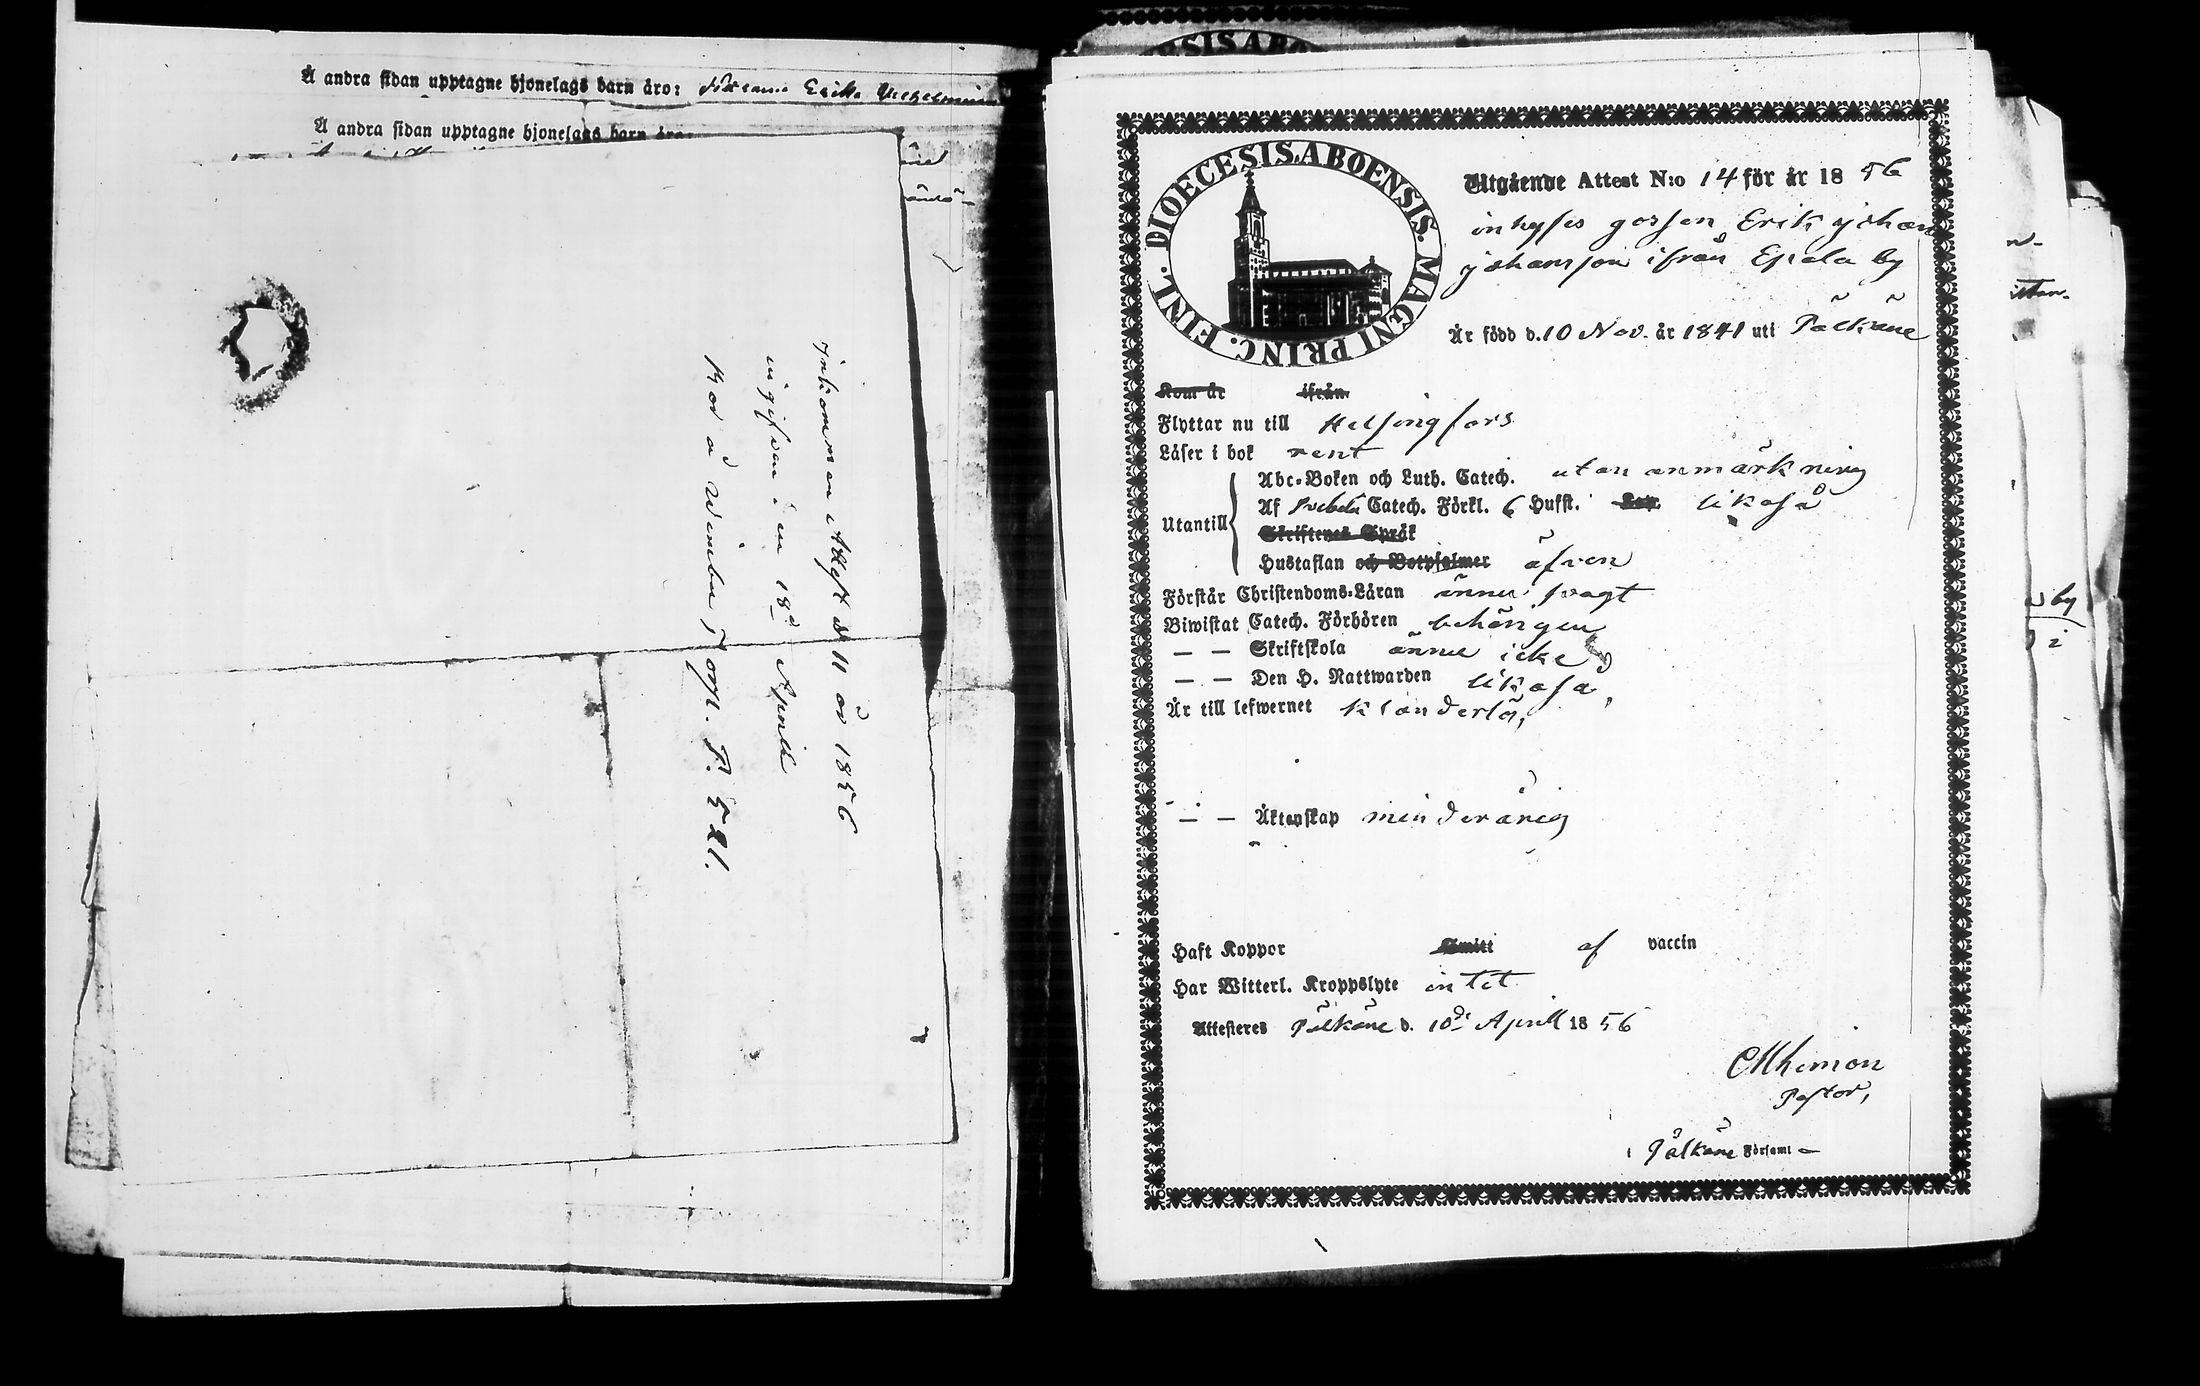 Å andra sidan upptagne hjonelags barn äro: Erika
Å andra sidan upptagne hjonelags barn äro:
inkommen Attest N 11 år 1856
ingifven den 18d Aprill
bor å Torp. P. 521.
DIOECESIS ABOENSIS. MAGNI PRINC. FINL.
Utgående Attest N:o 14 för år 1856
inhyses gossen Erik johan
johansson ifrån Epala by
Är född d. 10 Nov. år 1841 uti Pälkäne
Kom år ifrån
Flyttar nu till Helsingfors
Läser i bok rent
Utantill
Abc-Boken och Luth. Catech. utan anmärkning
Af Svebeli Catech. Förkl. 6 Hufst. likaså
Skriftenes Språk
Hustaflan och Botpsalmer äfven
Förstår Christendoms-Läran ännu svagt
Biwistat Catech. Förhören behörigen
— — Skriftskola ännu icke
— — Den H. Nattwarden likaså,
Är till lefwernet klanderlös,
— — Äktenskap minderårig
Haft Koppor Smitt af vaccin
Har Witterl. Kroppslyte intet
Attesteras Pälkäne d. 10de Aprill 1856
Pastor,
i Pälkäne Församl
by
i